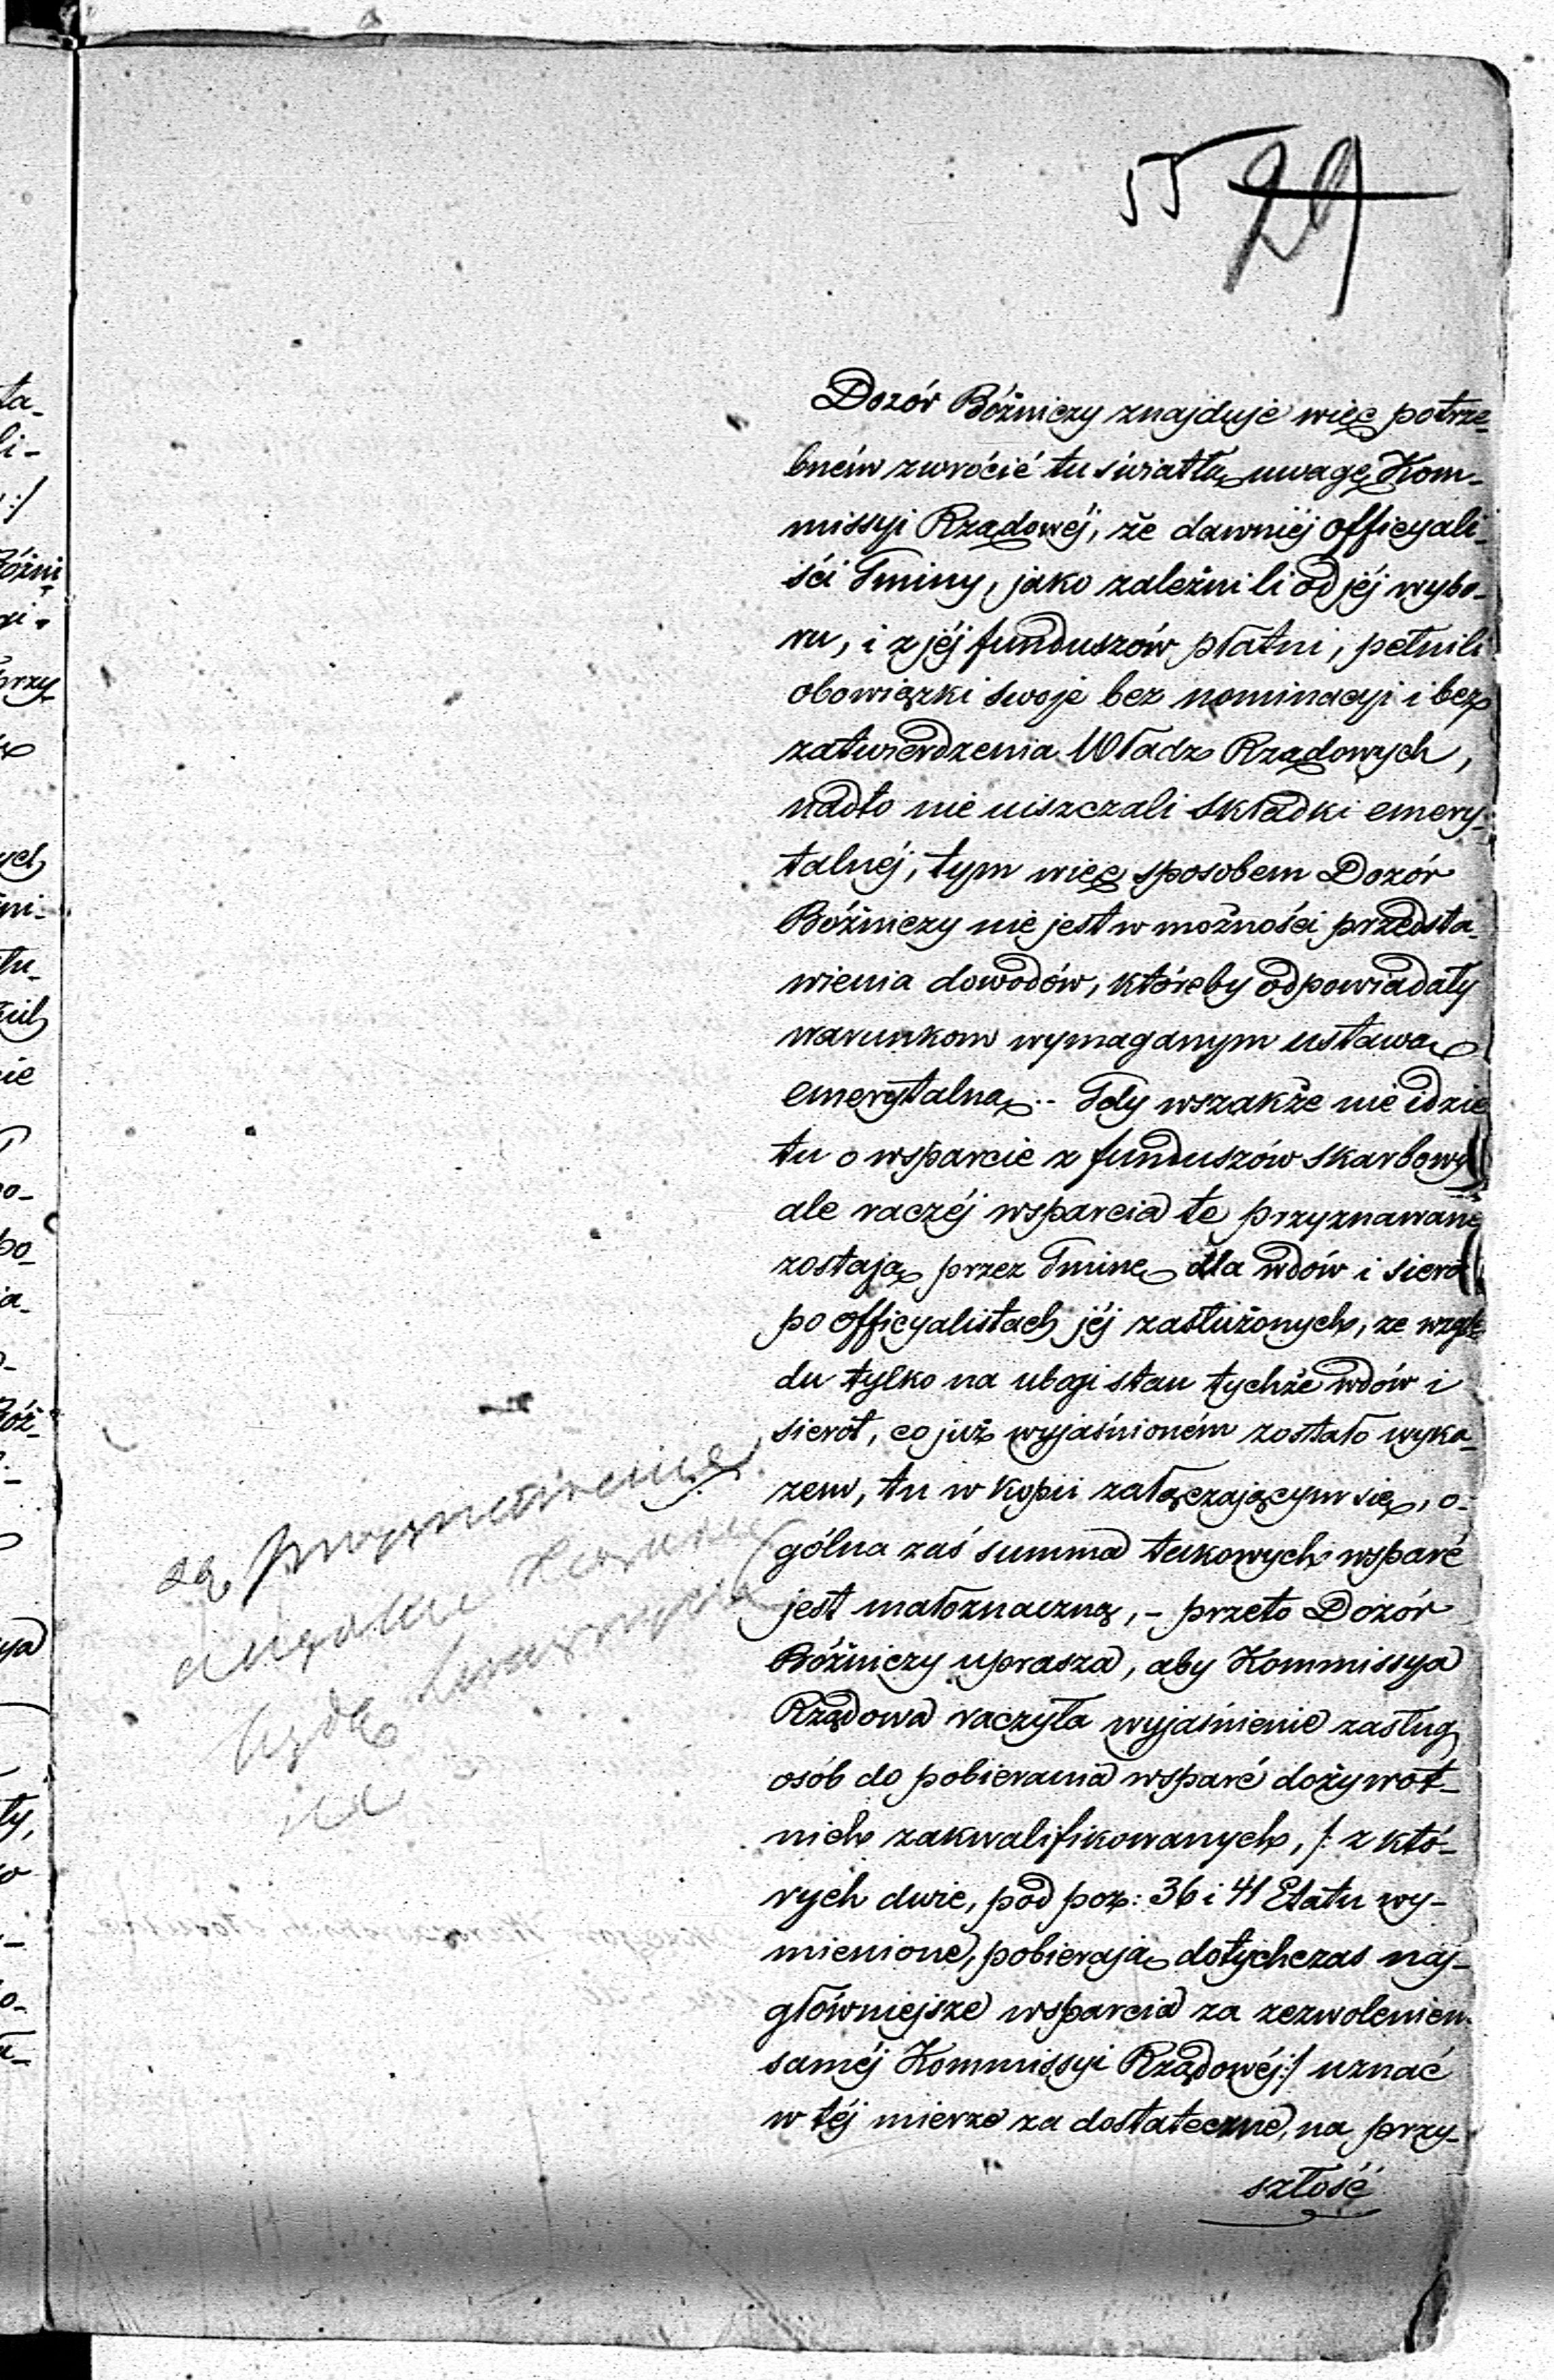 55 29
Dozór Bóżniczy znajduje więc potrze-
bném zwrócić tu światłą uwagę Kom-
missyi Rządowéj, że dawniéj officyali-
ści Gminy, jako zależni li od jéj wybo-
ru, i z jéj funduszów płatni, pełnili
obowiązki swoje bez nominacyi i bez
zatwierdzenia Władz Rządowych,
nadto nie uiszczali składki emery-
talnéj, tym więc sposobem Dozór
Bóżniczy nie jest w możności przedsta-
wienia dowodów, któreby odpowiadały
warunkom wymaganym ustawą
emerytalną.- Gdy wszakże nie idzie
tu o wsparcie z funduszów skarbowy
ale raczéj wsparcia te przyznawane
zostają przez Gminę dla wdów i siero
po officyalistach jéj zasłużonych, ze wzglę
du tylko na ubogi stan tychże wdów i
sierot, co już wyjaśnioném zostało wyka-
zem, tu w kopii załączającym się, o-
gólna zaś summa takowych wsparć
jest małoznaczną, - przeto Dozór
Bóżniczy uprasza, aby Kommissya
Rządowa raczyła wyjaśnienie zasług
osób do pobierania wsparć dożywot-
nich zakwalifikowanych, /: z któ-
rych dwie, pod poz: 36 i 41 Etatu wy-
mienione, pobierają dotychczas naj-
główniejsze wsparcia za zezwoleniem
saméj Kommissyi Rządowéj:/ uznać
w téj mierze za dostateczne, na przy-
szłość